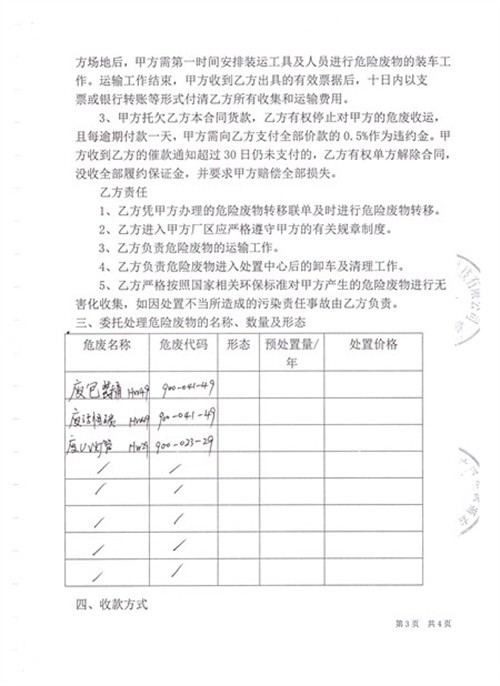 方场地后，甲方需第一时间安排装运工具及人员进行危险废物的装车工
作。运输工作结束，甲方收到乙方出具的有效票据后，十日内以支
票或银行转账等形式付清乙方所有收集和运输费用。
3、甲方托欠乙方本合同货款，乙方有权停止对甲方的危废收运，
且每逾期付款一天，甲方需向乙方支付全部价款的 0.5%作为违约金。甲
方收到乙方的催款通知超过 30 日仍未支付的，乙方有权单方解除合同，
没收全部履约保证金，并要求甲方赔偿全部损失。
乙方责任
1、乙方凭甲方办理的危险废物转移联单及时进行危险废物转移。
2、乙方进入甲方厂区应严格遵守甲方的有关规章制度。
3、乙方负责危险废物的运输工作。
4、乙方负责危险废物进入处置中心后的卸车及清理工作。
5、乙方严格按照国家相关环保标准对甲方产生的危险废物进行无
害化收集，如因处置不当所造成的污染责任事故由乙方负责。
三、委托处理危险废物的名称、数量及形态
危废名称 危废代码 形态 预处置量/年 处置价格
废包装桶 HW49 900-041-49
废活性炭 HW49 900-041-49
废UV灯管 HW29 900-023-29
/ /
/ /
/ /
/ /
/ /
四、收款方式
第 3 页 共 4 页